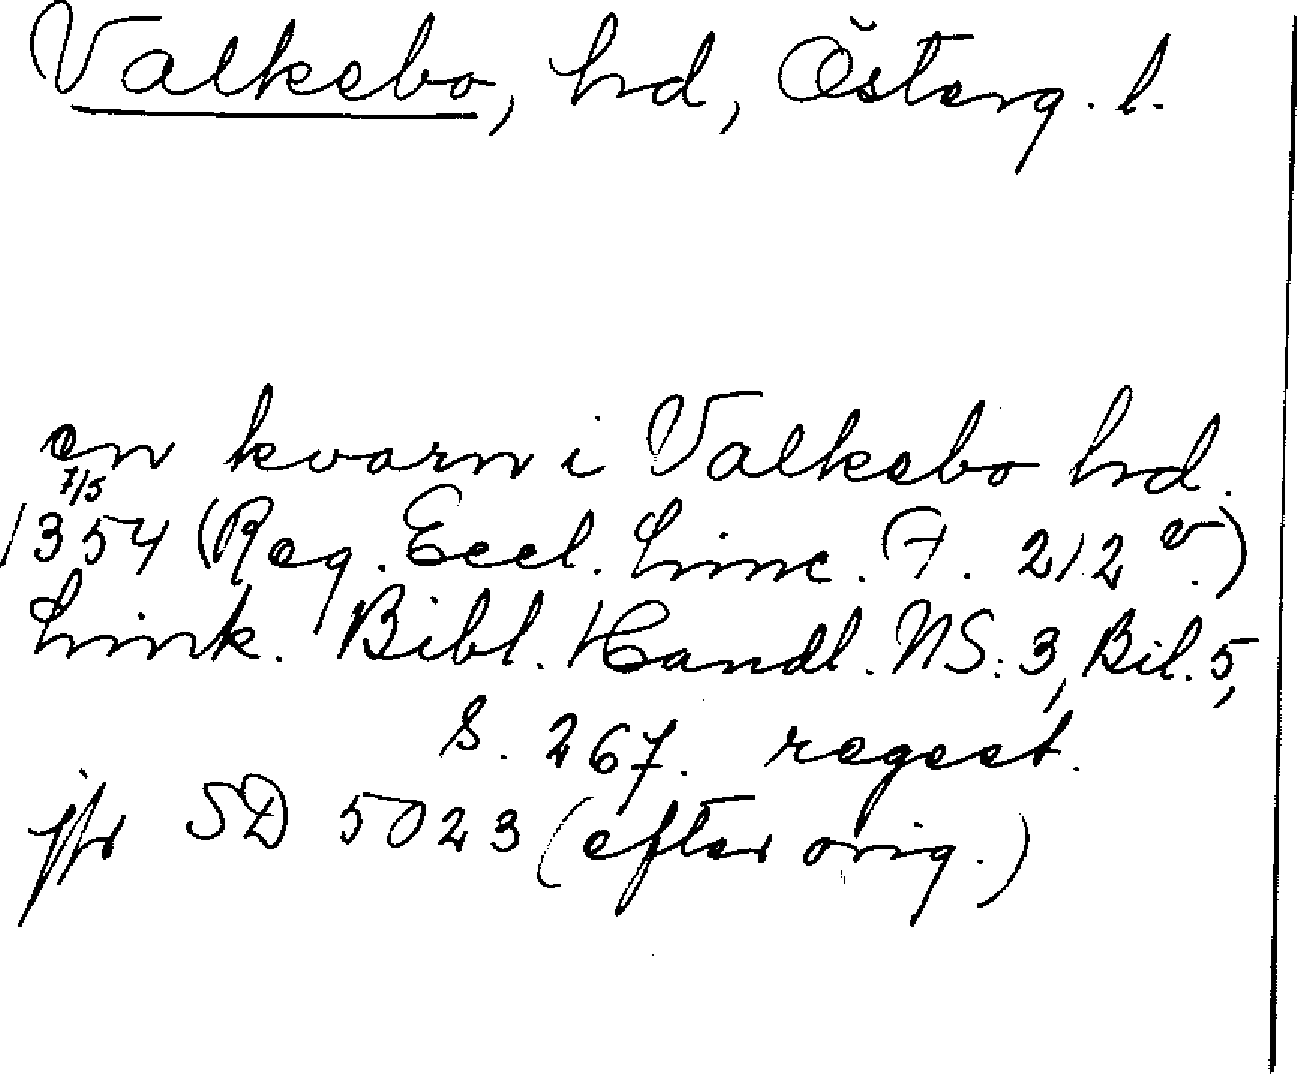 Valkebo, hd, Österg. l.
en kvarn i Valkebo hd.
7/5
1354 (Reg. Eccl. Linc. F. 212 v.)
Link. Bibl. Handl. NS: 3, Bil. 5,
s. 267. regest.
jfr SD 5023 (efter orig.)